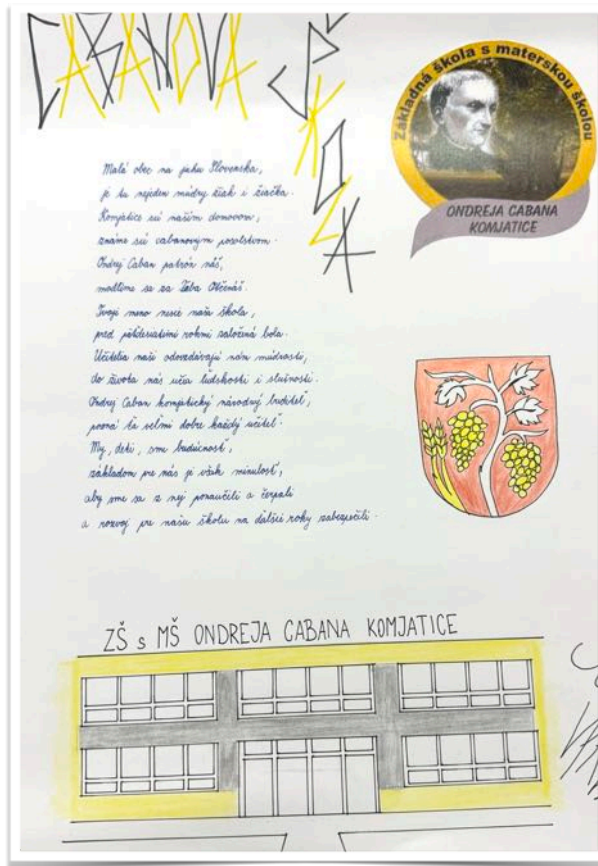 CABANOVA
ŠKOLA
Základná škola s materskou školou
ONDREJA CABANA
KOMJATICE
Malá obec na juhu Slovenska,
je tu nejeden múdry žiak i žiačka.
Komjatice sú naším domovom,
známe sú cabanovým posolstvom.
Ondrej Caban patrón náš,
modlíme sa za Teba Otčenáš.
Tvoje meno nesie naša škola,
pred päťdesiatimi rokmi založená bola.
Učitelia naši odovzdávajú nám múdrosti,
do života nás učia ľudskosti i slušnosti.
Ondrej Caban komjatický národný buditeľ,
pozná ťa veľmi dobre každý učiteľ.
My, deti, sme budúcnosť,
základom pre nás je však minulosť,
aby sme sa z nej ponaučili a čerpali
a rozvoj pre našu školu na ďalšie roky zabezpečili.
ZŠ s MŠ ONDREJA CABANA KOMJATICE